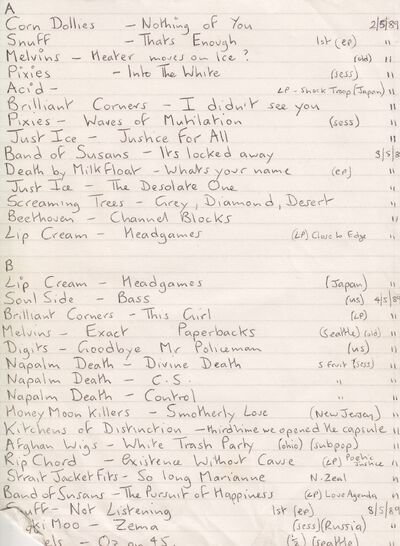 A
Corn Dollies - Nothing of You 2/5/89
Snuff - Thats Enough 1st (ep) "
Melvins - Heater moves on Ice? (old) "
Pixies - Into The White (sess) "
Acid - LP - Shock Troop (Japan) "
Brilliant Corners - I didn't see you "
Pixies - Waves of Mutilation (sess) "
Just Ice - Justice For All "
Band of Susans - Its locked away 3/5/8
Death by Milkfloat - Whats your name (ep) "
Just Ice - The Desolate One "
Screaming Trees - Grey, Diamond, Desert "
Beethoven - Channel Blocks "
Lip Cream - Headgames (LP) Close to Edge "
B
Lip Cream - Headgames (Japan) "
Soul Side - Bass (US) 4/5/89
Brilliant Corners - This Girl (LP) "
Melvins - Exact Paperbacks (Seattle) (old) "
Digits - Goodbye Mr Policeman (US) "
Napalm Death - Divine Death S Fruit (sess) "
Napalm Death - C.S. " "
Napalm Death - Control " "
Honey Moon Killers - Smotherly Love (New Jersey) "
Kitchens of Distinction - third time we opened the capsule "
Afghan Wigs - White Trash Party (ohio) (subpop) "
Rip Chord - Existence Without Cause (LP) Poetic Justice "
Strait Jacket Fits - So long Marianne N. Zeal "
Band of Susans - The Pursuit of Happiness (LP) Love Agenda "
Snuff - Not Listening 1st (ep) 8/5/89
ki Moo - Zema (sess) (Russia) "
els - Oz on 45. (Seattle) "